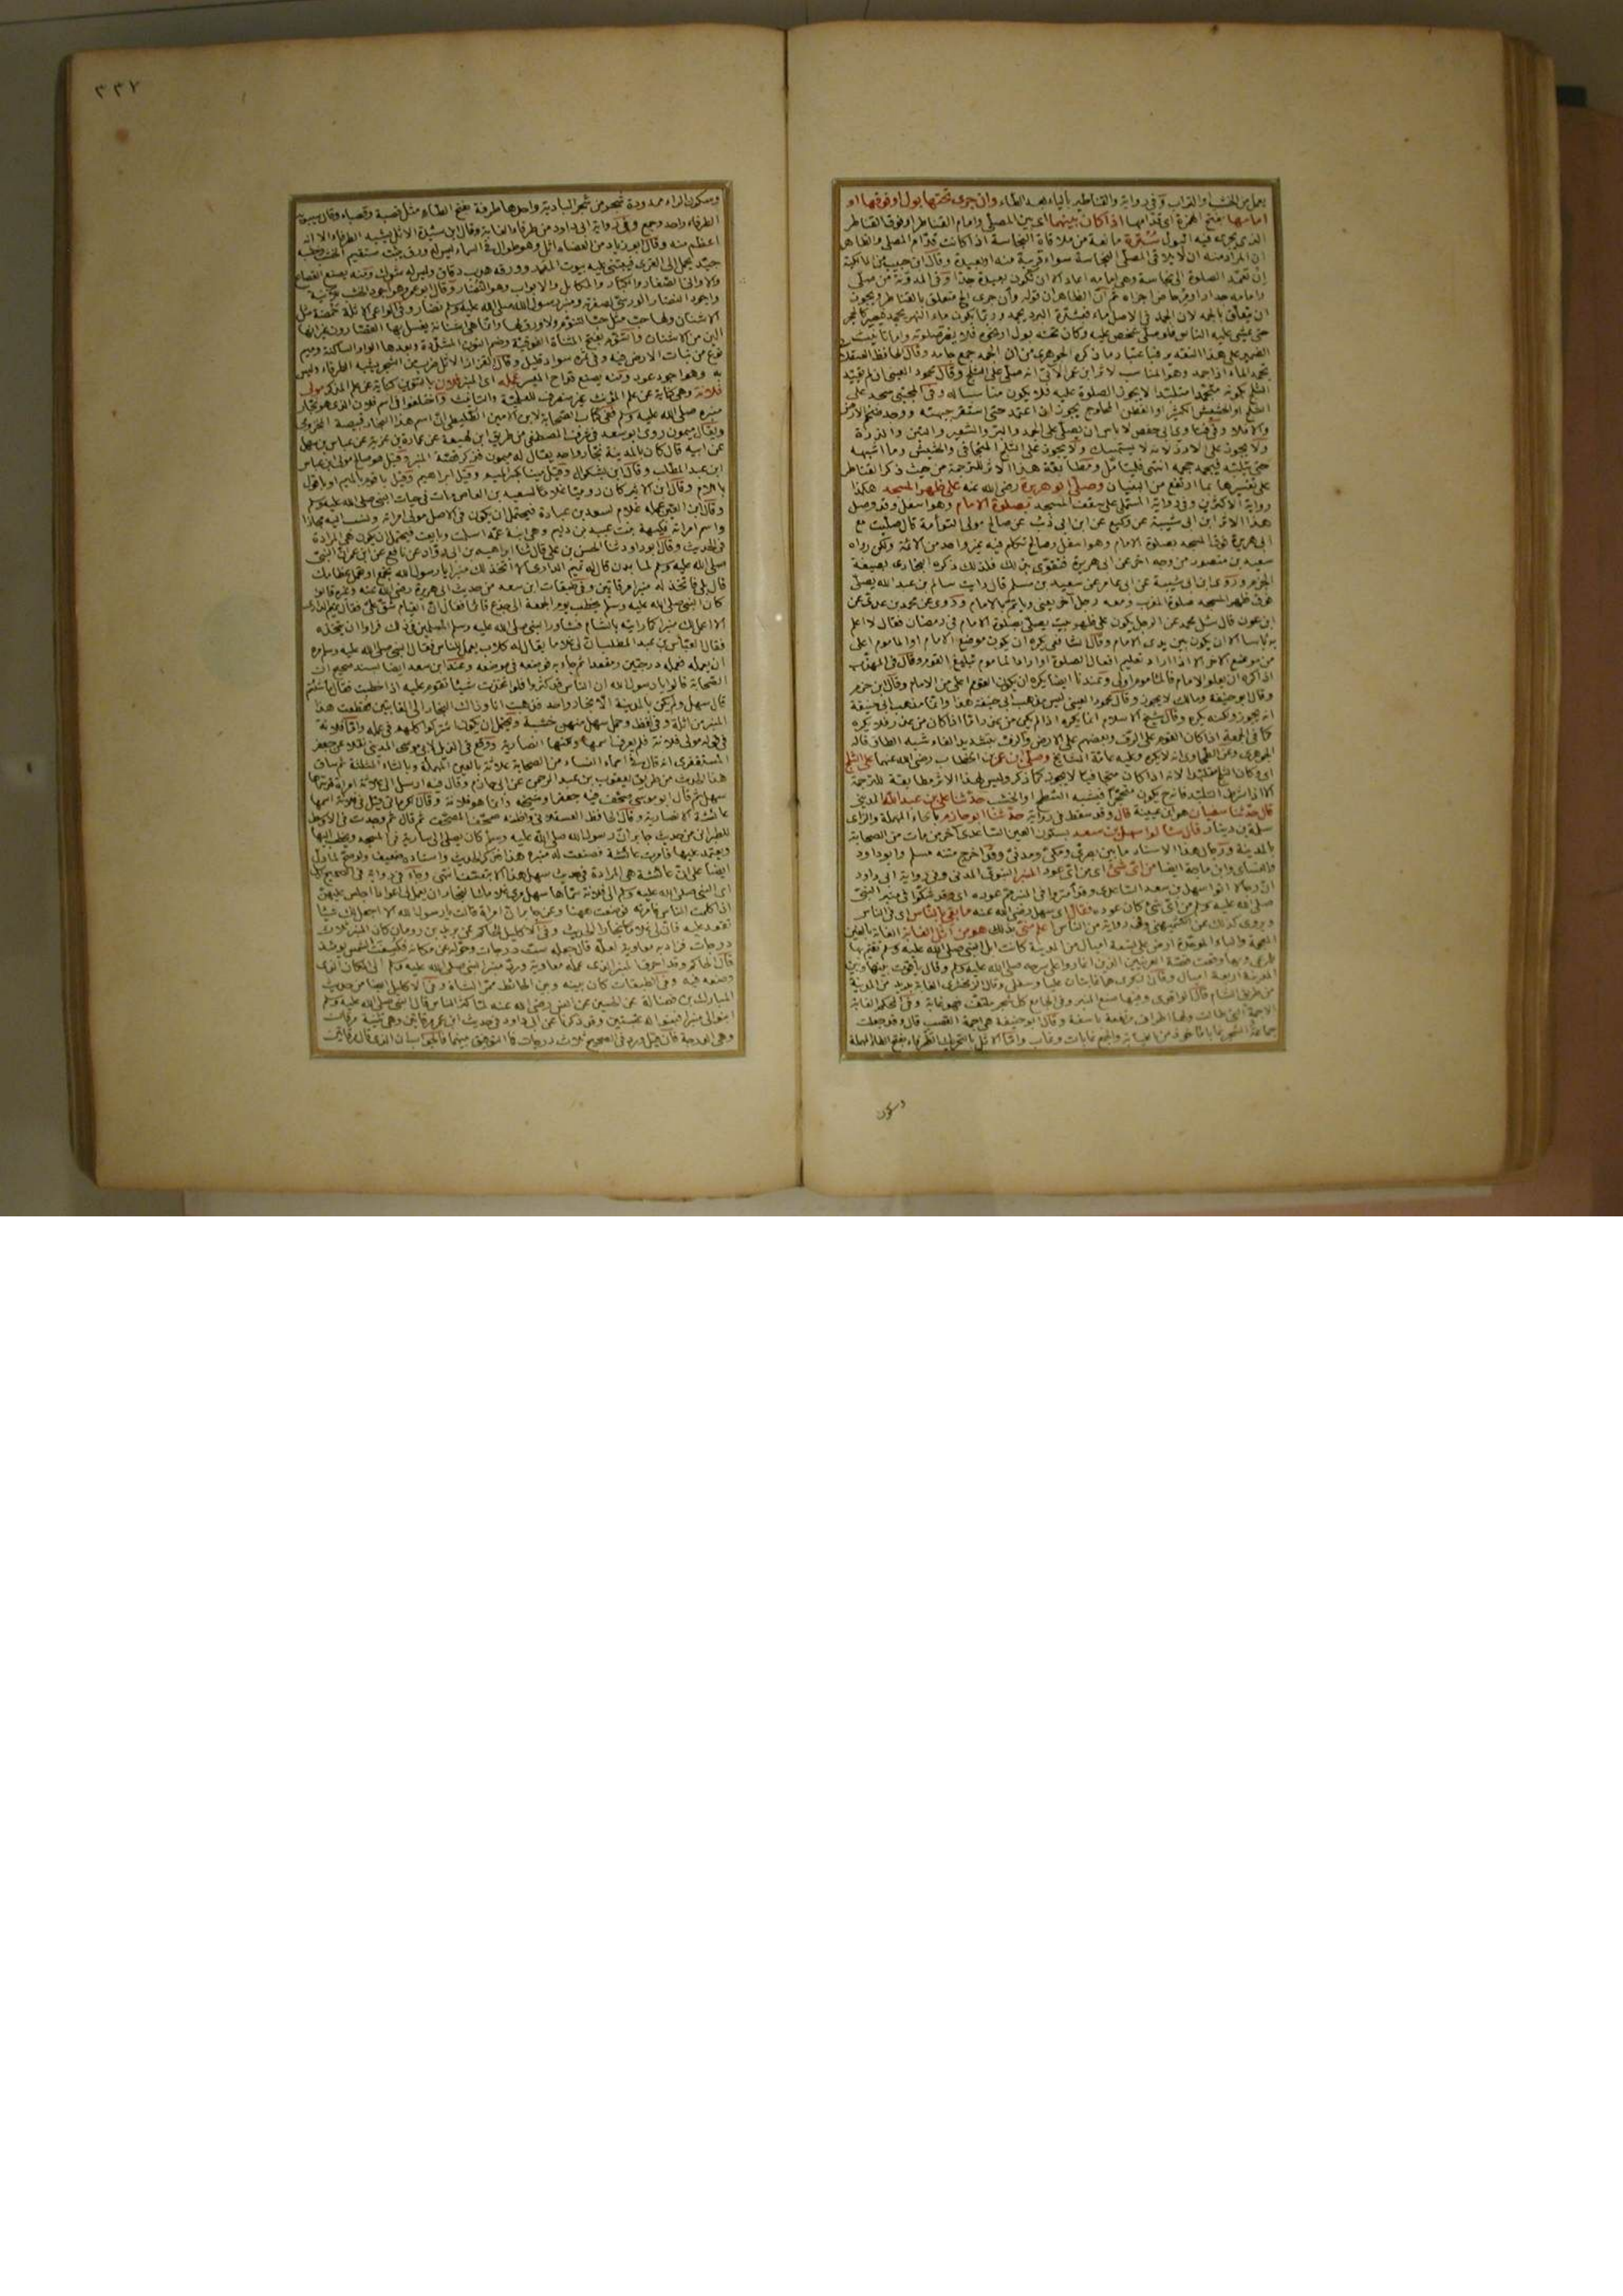 يعمل من الخشب او التراب وفي رواية والقناطير بالياء بعد الطاء وان جرى تحتها بول او فوقها او
امامها بفتح الهمزة اي قدامها اذا كان بينهما اي بين المصلى وامام القناطر او فوق القناطر
الذي يجرى فيه البول سترة مانعة من ملاقاة النجاسة اذا كانت قدام المصلى والظاهر
ان المراد منه ان لا يلاقى المصلى النجاسة سواء قريبة منه او بعيدة وقال ابن حبيب من المالكية
ان تعمد الصلوة الى نجاسة وهى امامه اعاد الا ان تكون بعيدة جدا وفى المدونة من صلى
وامامه جدار او مرحاض اجزاه ثم ان الظاهر ان قوله وان جرى الخ متعلق بالقناطر ويجوز
ان يتعلق بالجمد لان الجمد فى الاصل ماء فبشدة البرد يجمد وربما يكون ماء النهر يجمد فيصير كالحجر
حتى يمشى عليه الناس فلو صلى شخص عليه وكان تحته بول او نحوه فلا يضر صلوته
يجمد الماء اذا جمد وهو المناسب لاثر ابن عمر الآتى انه صلى على الثلج وقال محمود العينى ان لم يقيد
الثلج بكونه متجمدا متلبدا لا يجوز الصلوة عليه فلا يكون مناسبا له وفى المجتبى سجد على
الثلج او الحشيش الكثير او القطن المحلوج يجوز ان اعتمد حتى استقر جبهته ووجد حجم الارض
والا فلا وفى فتاوى ابى حفص لا باس ان يصلى على الجمد والبر والشعير والتبن والذرة
ولا يجوز على الارز لانه لا يستمسك ولا يجوز على الثلج المتجافى والحشيش وما اشبهه
حتى يلبده فيجد حجمه انتهى فليتامل ومطابقة هذا الاثر للترجمة من حيث ذكر القناطر
على تفسيرها بما ارتفع من البنيان وصلى ابو هريرة رضى الله عنه على ظهر المسجد هكذا
رواية الاكثرين وفى رواية المستملى على سقف المسجد بصلوة الامام وهو اسفل وقد وصل
هذا الاثر ابن ابى شيبة عن وكيع عن ابن ابى ذئب عن صالح مولى التوأمة قال صليت مع
ابى هريرة فوق المسجد بصلوة الامام وهو اسفل وصالح تكلم فيه غير واحد من الائمة ولكن رواه
سعيد بن منصور من وجه آخر عن ابى هريرة فتقوى بذلك فلذلك ذكره البخارى بصيغة
الجزم وروى ابن ابى شيبة عن ابى عامر عن سعيد بن مسلم قال رايت سالم بن عبد الله يصلى
فوق ظهر المسجد صلوة المغرب ومعه رجل آخر يعنى وياتم بالامام وروى عن محمد بن عدى عن
ابن عون قال سئل محمد عن الرجل يكون على ظهر بيت يصلى بصلوة الامام فى رمضان فقال لا اعلم
به باسا الا ان يكون بين يدى الامام وقال الشافعى يكره ان يكون موضع الامام او الماموم اعلى
من موضع الآخر الا اذا اراد تعليم افعال الصلوة او اراد الماموم تبليغ القوم وقال فى المهذب
اذا كره ان يعلو الامام فالماموم اولى وعندنا ايضا يكره ان يكون القوم اعلى من الامام وقال ابن حزم
وقال ابو حنيفة ومالك لا يجوز وقال محمود العينى ليس مذهب ابى حنيفة هذا وانما مذهب ابى حنيفة
انه يجوز ولكنه يكره وقال شيخ الاسلام انما يكره اذا لم يكن من عذر اما اذا كان من عذر فلا يكره
كما فى الجمعة اذا كان القوم على الرف وبعضهم على الارض والرف بتشديد الفاء شبه الطاق قاله
الجوهرى وعن الطحاوى انه لا يكره وعليه عامة المشايخ وصلى ابن عمر بن الخطاب رضى الله عنهما على الثلج
اى وكان الثلج متلبدا لانه اذا كان متجافيا لا يجوز كما ذكر وليس لهذا الاثر مطابقة للترجمة
الا اذا شرط التلبد فانه ح يكون متحجرا فيشبه السطح او الخشب حدثنا على بن عبد الله المدينى
قال حدثنا سفيان هو ابن عيينة قال وقد سقط فى رواية حدثنا ابو حازم بالحاء المهملة والزاى
سلمة بن دينار قال سالوا سهل بن سعد بسكون العين الساعدى آخر من مات من الصحابة
بالمدينة ورجال هذا الاسناد ما بين بصرى ومكى ومدنى وقد اخرج متنه مسلم وابو داود
والنسائى وابن ماجة ايضا من اى شئ اى من اى عود المنبر النبوى المدنى وفى رواية ابى داود
ان رجالا اتوا سهل بن سعد الساعدى وقد امتروا فى المنبر مم عوده اى وقد شكوا فى منبر النبى
صلى الله عليه وسلم من اى شئ كان عوده فقال اى سهل رضى الله عنه ما بقى بالناس اى فى الناس
ويروى كذلك عن الكشميهنى وفى رواية من الناس اعلم منى بذلك هو من اثل الغابة الغابة بالغين
المعجمة والباء الموحدة ارض على تسعة اميال من المدينة كانت ابل النبى صلى الله عليه وسلم مقيمة بها
للمرعى وبها وقعت قصة العرنيين الذين اغاروا على سرحه صلى الله عليه وسلم وقال ياقوت بينها وبين
المدينة اربعة اميال وقال البكرى هما غابتان عليا وسفلى وقال الزمخشرى الغابة بريد من المدينة
من طريق الشام قال الواقدى ومنها صنع المنبر وفى الجامع كل شجر ملتف فهو غابة وفى المحكم الغابة
الاجمة التى طالت ولها اطراف مرتفعة باسقة وقال ابو حنيفة هى اجمة القصب قال وقد جعلت
جماعة الشجر غابا ماخوذ من الغيابة والجمع غابات وغاب واما الاثل بالطرفاء بفتح الطاء المهملة
وسكون
٣٣٧
وسكون الراء ممدودة شجر من شجر البادية واحدها طرفة بفتح الطاء مثل قصبة وقصباء وقال سيبويه
الطرفاء واحد وجمع وفى رواية ابى داود من طرفاء الغابة وقال ابن سيدة الاثل يشبه الطرفاء الا انه
اعظم منه وقال ابو زياد من العضاه اثل وهو طوال فى السماء ليس له ورق ينبت مستقيم الخشب وخشبه
جيد يحمل الى القرى فيبتنى عليه بيوت المدر وورقه هدب دقاق وليس له شوك ومنه يصنع القصاع
والاوانى الصغار والكبار والمكاييل والابواب وهو النضار وقال ابو عمرو هو اجود الخشب للآنية
واجود النضار الورسى لصفرته ومنبر رسول الله صلى الله عليه وسلم نضار وفى الواعى الاثلة حمضة مثل
الاشنان ولها حب مثل حب التنوم ولا ورق لها وانما هى اشنانة يغسل بها القصارون غير انها
الين من الاشنان والتنوم بفتح المثناة الفوقية وضم النون المشددة وبعدها الواو الساكنة وميم
نوع من نبات الارض فيه وفى ثمره سواد قليل وقال القزاز الاثل ضرب من الشجر يشبه الطرفاء وليس
به وهو اجود عودا ومنه يصنع قداح الميسر عمله اى المنبر فلان بالتنوين كناية عن علم المذكر مولى
فلانة وهى كناية عن علم المؤنث غير منصرف للعلمية والتانيث واختلفوا فى اسم فلان الذى هو نجار
منبره صلى الله عليه وسلم ففى كتاب الصحابة لابن الامين الطليطلى ان اسم هذا النجار قبيصة المخزومى
ويقال ميمون روى ابو سعد فى شرف المصطفى من طريق ابن لهيعة عن عمارة بن غزية عن عباس بن سهل
عن ابيه قال كان بالمدينة نجار واحد يقال له ميمون فذكر قصة المنبر وقيل هو صباح مولى ابن عباس
ابن عبد المطلب وقال ابن بشكوال وقيل ميناء وقيل ابراهيم وقيل باقوم بالميم او باقول
باللام وقال ابن الاثير كان روميا غلاما لسعيد بن العاص مات فى حيات النبى صلى الله عليه وسلم
وقال ابن التين عمله غلام لسعد بن عبادة فيحتمل ان يكون فى الاصل مولى امراته ونسب اليه مجازا
واسم امراته فكيهة بنت عبيد بن دليم وهى ابنة عمه اسلمت وبايعت فيحتمل ان يكون هى المرادة
فى الحديث وقال ابو داود ثنا الحسن بن على قال ثنا ابو عاصم عن ابن ابى رواد عن نافع عن ابن عمر ان النبى
صلى الله عليه وسلم لما بدن قال له تميم الدارى الا اتخذ لك منبرا يا رسول الله يجمع او يحمل عظامك
قال بلى فاتخذ له منبرا مرقاتين وفى طبقات ابن سعد من حديث ابى هريرة رضى الله عنه وغيره قالوا
كان النبى صلى الله عليه وسلم يخطب يوم الجمعة الى جذع قائما فقال ان القيام شق على فقال تميم الدارى
الا اعمل لك منبرا كما رايته بالشام فشاور النبى صلى الله عليه وسلم المسلمين فى ذلك فراوا ان يتخذه
فقال العباس بن عبد المطلب ان لى غلاما يقال له كلاب يعمل للناس فقال النبى صلى الله عليه وسلم مره
ان يعمله فعمله درجتين ومقعدا ثم جاء به فوضعه فى موضعه وعند ابن سعد ايضا بسند صحيح ان
الصحابة قالوا يا رسول الله ان الناس قد كثروا فلو اتخذت شيئا تقوم عليه اذا خطبت فقال ما شئتم
قال سهل ولم يكن بالمدينة الا نجار واحد فذهبت انا وذاك النجار الى الغابتين فقطعت هذا
المنبر من اثلة وفى لفظ وحمل سهل منهن خشبة ويحتمل ان يكونوا اشتركوا كلهم فى عمله واما فلانة
فى قوله مولى فلانة فلم يعرف اسمها ولكنها انصارية ووقع فى الذيل لابى موسى المدينى نقلا عن جعفر
المستغفرى انه قال فى اسماء النساء من الصحابة علاثة بالعين المهملة وبالثاء المثلثة ثم ساق
هذا الحديث من طريق يعقوب بن عبد الرحمن عن ابى حازم وقال فيه ارسل الى علاثة امراة قد سماها
سهل ثم قال ابو موسى صحف فيه جعفر او شيخه وانما هو فلانة وقال الكرمانى قيل فى فلانة اسمها
عائشة الانصارية وقال الحافظ العسقلانى واظنه صحف المصحف ثم قال ثم وجدت فى الاوسط
للطبرانى من حديث جابر ان رسول الله صلى الله عليه وسلم كان يصلى الى سارية فى المسجد ويخطب اليها
ويعتمد عليها فامرت عائشة فصنعت له منبره هذا فذكر الحديث واسناده ضعيف ولو صح لما دل
ايضا على ان عائشة هى المرادة فى حديث سهل هذا الا بتعسف انتهى وجاء فى رواية فى الصحيح ارسل
اى النبى صلى الله عليه وسلم الى فلانة سماها سهل مرى غلامك النجار ان يعمل لى اعوادا اجلس عليهن
اذا كلمت الناس فامرته فوضعت ههنا وعن جابر ان امراة قالت يا رسول الله الا اجعل لك شيئا
تقعد عليه فان لى غلاما نجارا الحديث وفى الاكليل للحاكم عن يزيد بن رومان كان المنبر ثلاث
درجات فزاد فيه معاوية لعله قال جعله ست درجات وحوله عن مكانه فكسفت الشمس يومئذ
قال الحاكم وقد احرق المنبر الذى عمله معاوية ورد منبر النبى صلى الله عليه وسلم الى المكان الذى
وضعه فيه وفى الطبقات كان بينه وبين الحائط ممر الشاة وفى الاكليل ايضا من حديث
المبارك بن فضالة عن الحسن عن انس رضى الله عنه لما كثر الناس قال النبى صلى الله عليه وسلم
ابنوا لى منبرا فبنوا له عتبتين وقد ذكرنا عن ابى داود فى حديث ابن عمر مرقاتين وهى تثنية مرقاة
وهى الدرجة فان قيل ورد فى الصحيح ثلاث درجات فما التوفيق بينهما فالجواب ان الذى قال مرقاتين